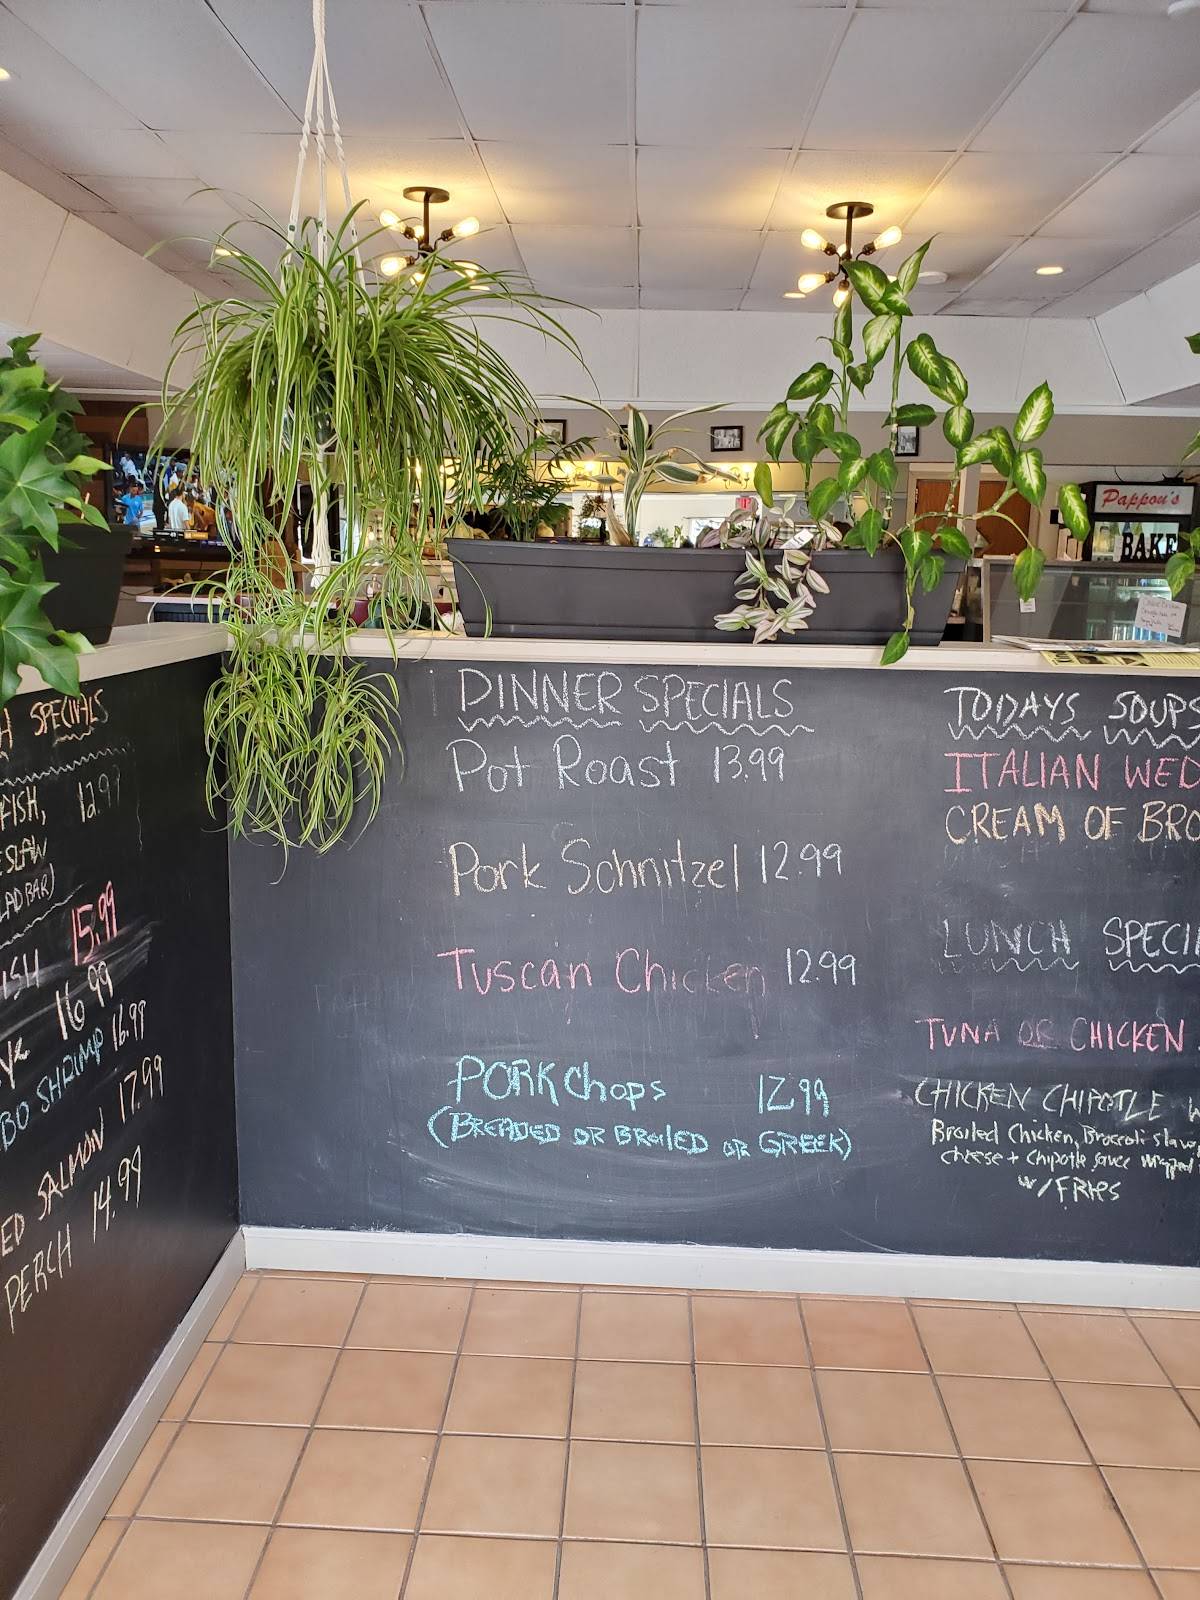 SPECIALS
FISH, 12.99
SLAW
LAD BAR)
15.99
16.99
BO SHRIMP 16.99
ED SALMON 17.99
PERCH 14.99
DINNER SPECIALS
Pot Roast 13.99
Pork Schnitzel 12.99
Tuscan Chicken 12.99
PORK Chops 12.99
(BREADED OR BROILED OR GREEK)
TODAYS SOUPS
ITALIAN WED
CREAM OF BRO
LUNCH SPECI
TUNA OR CHICKEN
CHICKEN CHIPOTLE
Broiled Chicken, Broccoli slaw,
cheese + chipotle sauce wrapped
w/FRIES
Pappou's
BAKE